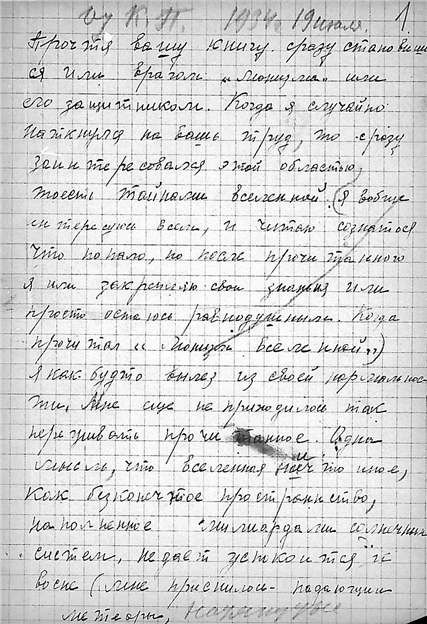 К. П. 1934. 19 июля. 1
Прочтя вашу книгу сразу становишь
ся или врагом „монизма" или
его защитником. Когда я случайно
наткнулся на вашь труд, то сразу
заинтересовался этой областью,
тоесть тайнами вселенной. (Я вобще
интересуюсь всем, и читаю сознатся
что попало, но после прочитанного
я или закрепляю свои знанья или
просто остаюсь равнодушным. Когда
прочитал „Монизм Вселенной")
Я как будто вылез из своей нормальнос
ти. Мне еще не приходилось так
переживать прочитанное. Одна
мысль, что вселенная не что иное,
как безконечное пространство,
наполненное милиардами солнечных
систем, не дает успокоится и
восне (мне приснилось падающии
метеоры,